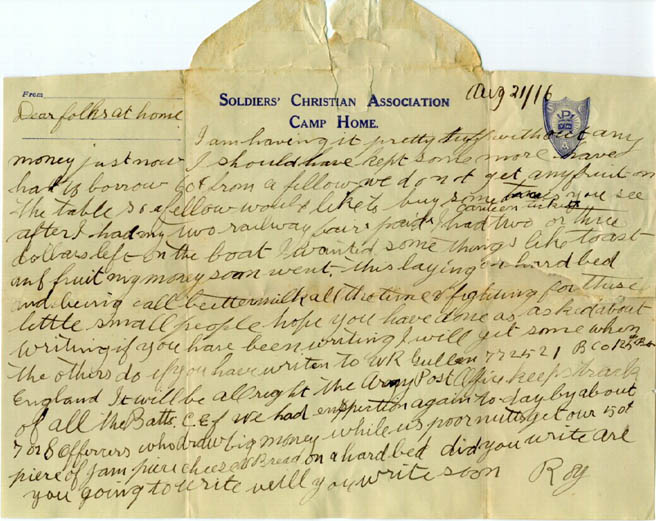 From
SOLDIERS' CHRISTIAN ASSOCIATION
CAMP HOME.
Aug 21/16
Dear folks at home
I am having it pretty tuff without any
money just now I should have kept some more have
had to borrow from a fellow we do not get any fruit on
the table so a fellow would like to buy some you see
canteen
after I had my two railway fairs paid I had two or three
dollars left on the boat I wanted some things like toast
and fruit my money soon went, this laying on hard bed
and being call buttermilk all the time & fighting for these
little small people hope you have done as asked about
writing if you have been writing I will get some when
the others do if you have written to WR Gullen 772521 B Co 125 Batt
England It will be all right the Army Post Office keeps track
of all the Batts. C.E.F We had inspection again to-day by about
7 or 8 officers who draw big money while us poor nutts get our
piece of Jam piece cheese & Bread on a hard bed did you write are
you going to write will you write soon Roy